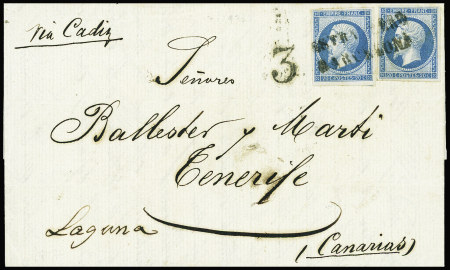 via Cadiz
EMPIRE FRANC.
EMPIRE FRANC.
3
ESTRANGERO
BARCELONA
20 C. POSTES 20 C.
20 C. POSTES 20 C.
Señores
Ballester y Marti
Tenerife
Laguna
(Canarias)